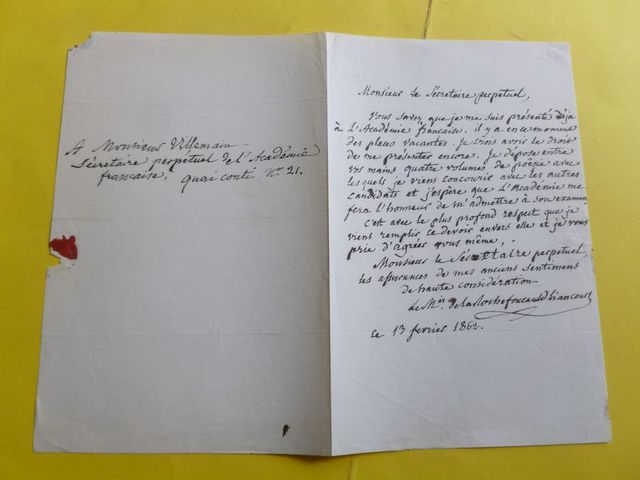 A Monsieur Villemain
Sécretaire perpetuel de l'Académie
française, quai conti Nº 21.
Monsieur le Sécretaire perpetuel,
Vous savez que je me suis présenté déja
à L'Académie française. il y a en ce moment
des places vacantes. je crois avoir le droit
de me présenter encore. Je dépose entre
vos mains quatre volumes de poësie avec
les quels je viens concourir avec les autres
candidats et j'espère que L'Académie me
fera l'honneur de m'admettre à son examen
c'est avec le plus profond respect que je
viens remplir ce devoir envers elle et je vous
prie d'agréer vous même,
Monsieur le Sécretaire perpetuel
les assurances de mes anciens sentimens
de haute considération
Le Mis. de la Rochefoucauld Liancourt
ce 13 fevrier 1862.